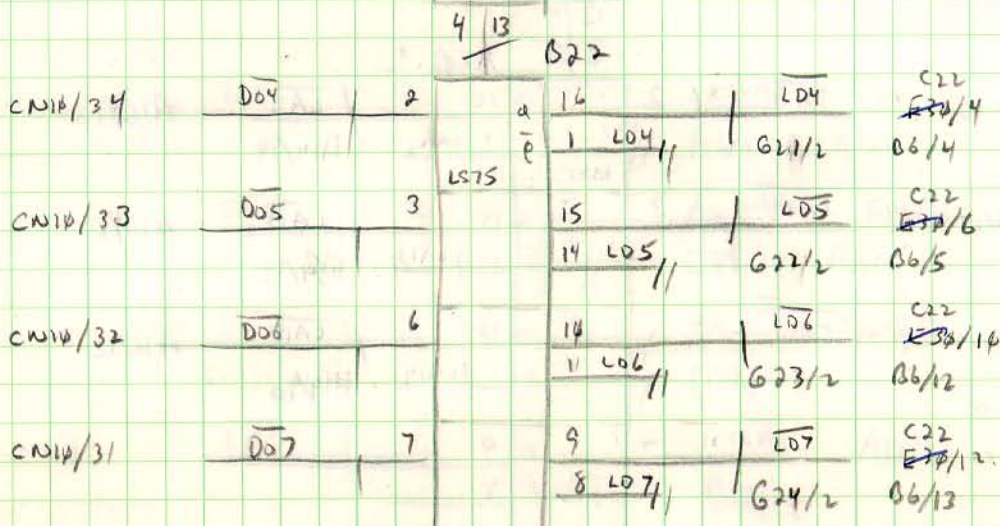 4 / 13 B22
CN1φ/34 D̅O̅4̅ 2 16 L̅D̅4̅ C22
E3φ/4
1 LD4 G21/2 B6/4
LS75
CN1φ/33 D̅O̅5̅ 3 15 L̅D̅5̅ C22
E3φ/6
14 LD5 G22/2 B6/5
CN1φ/32 D̅O̅6̅ 6 1φ L̅D̅6̅ C22
E3φ/1φ
11 LD6 G23/2 B6/12
CN1φ/31 D̅O̅7̅ 7 9 L̅D̅7̅ C22
E3φ/12
8 LD7 G24/2 B6/13